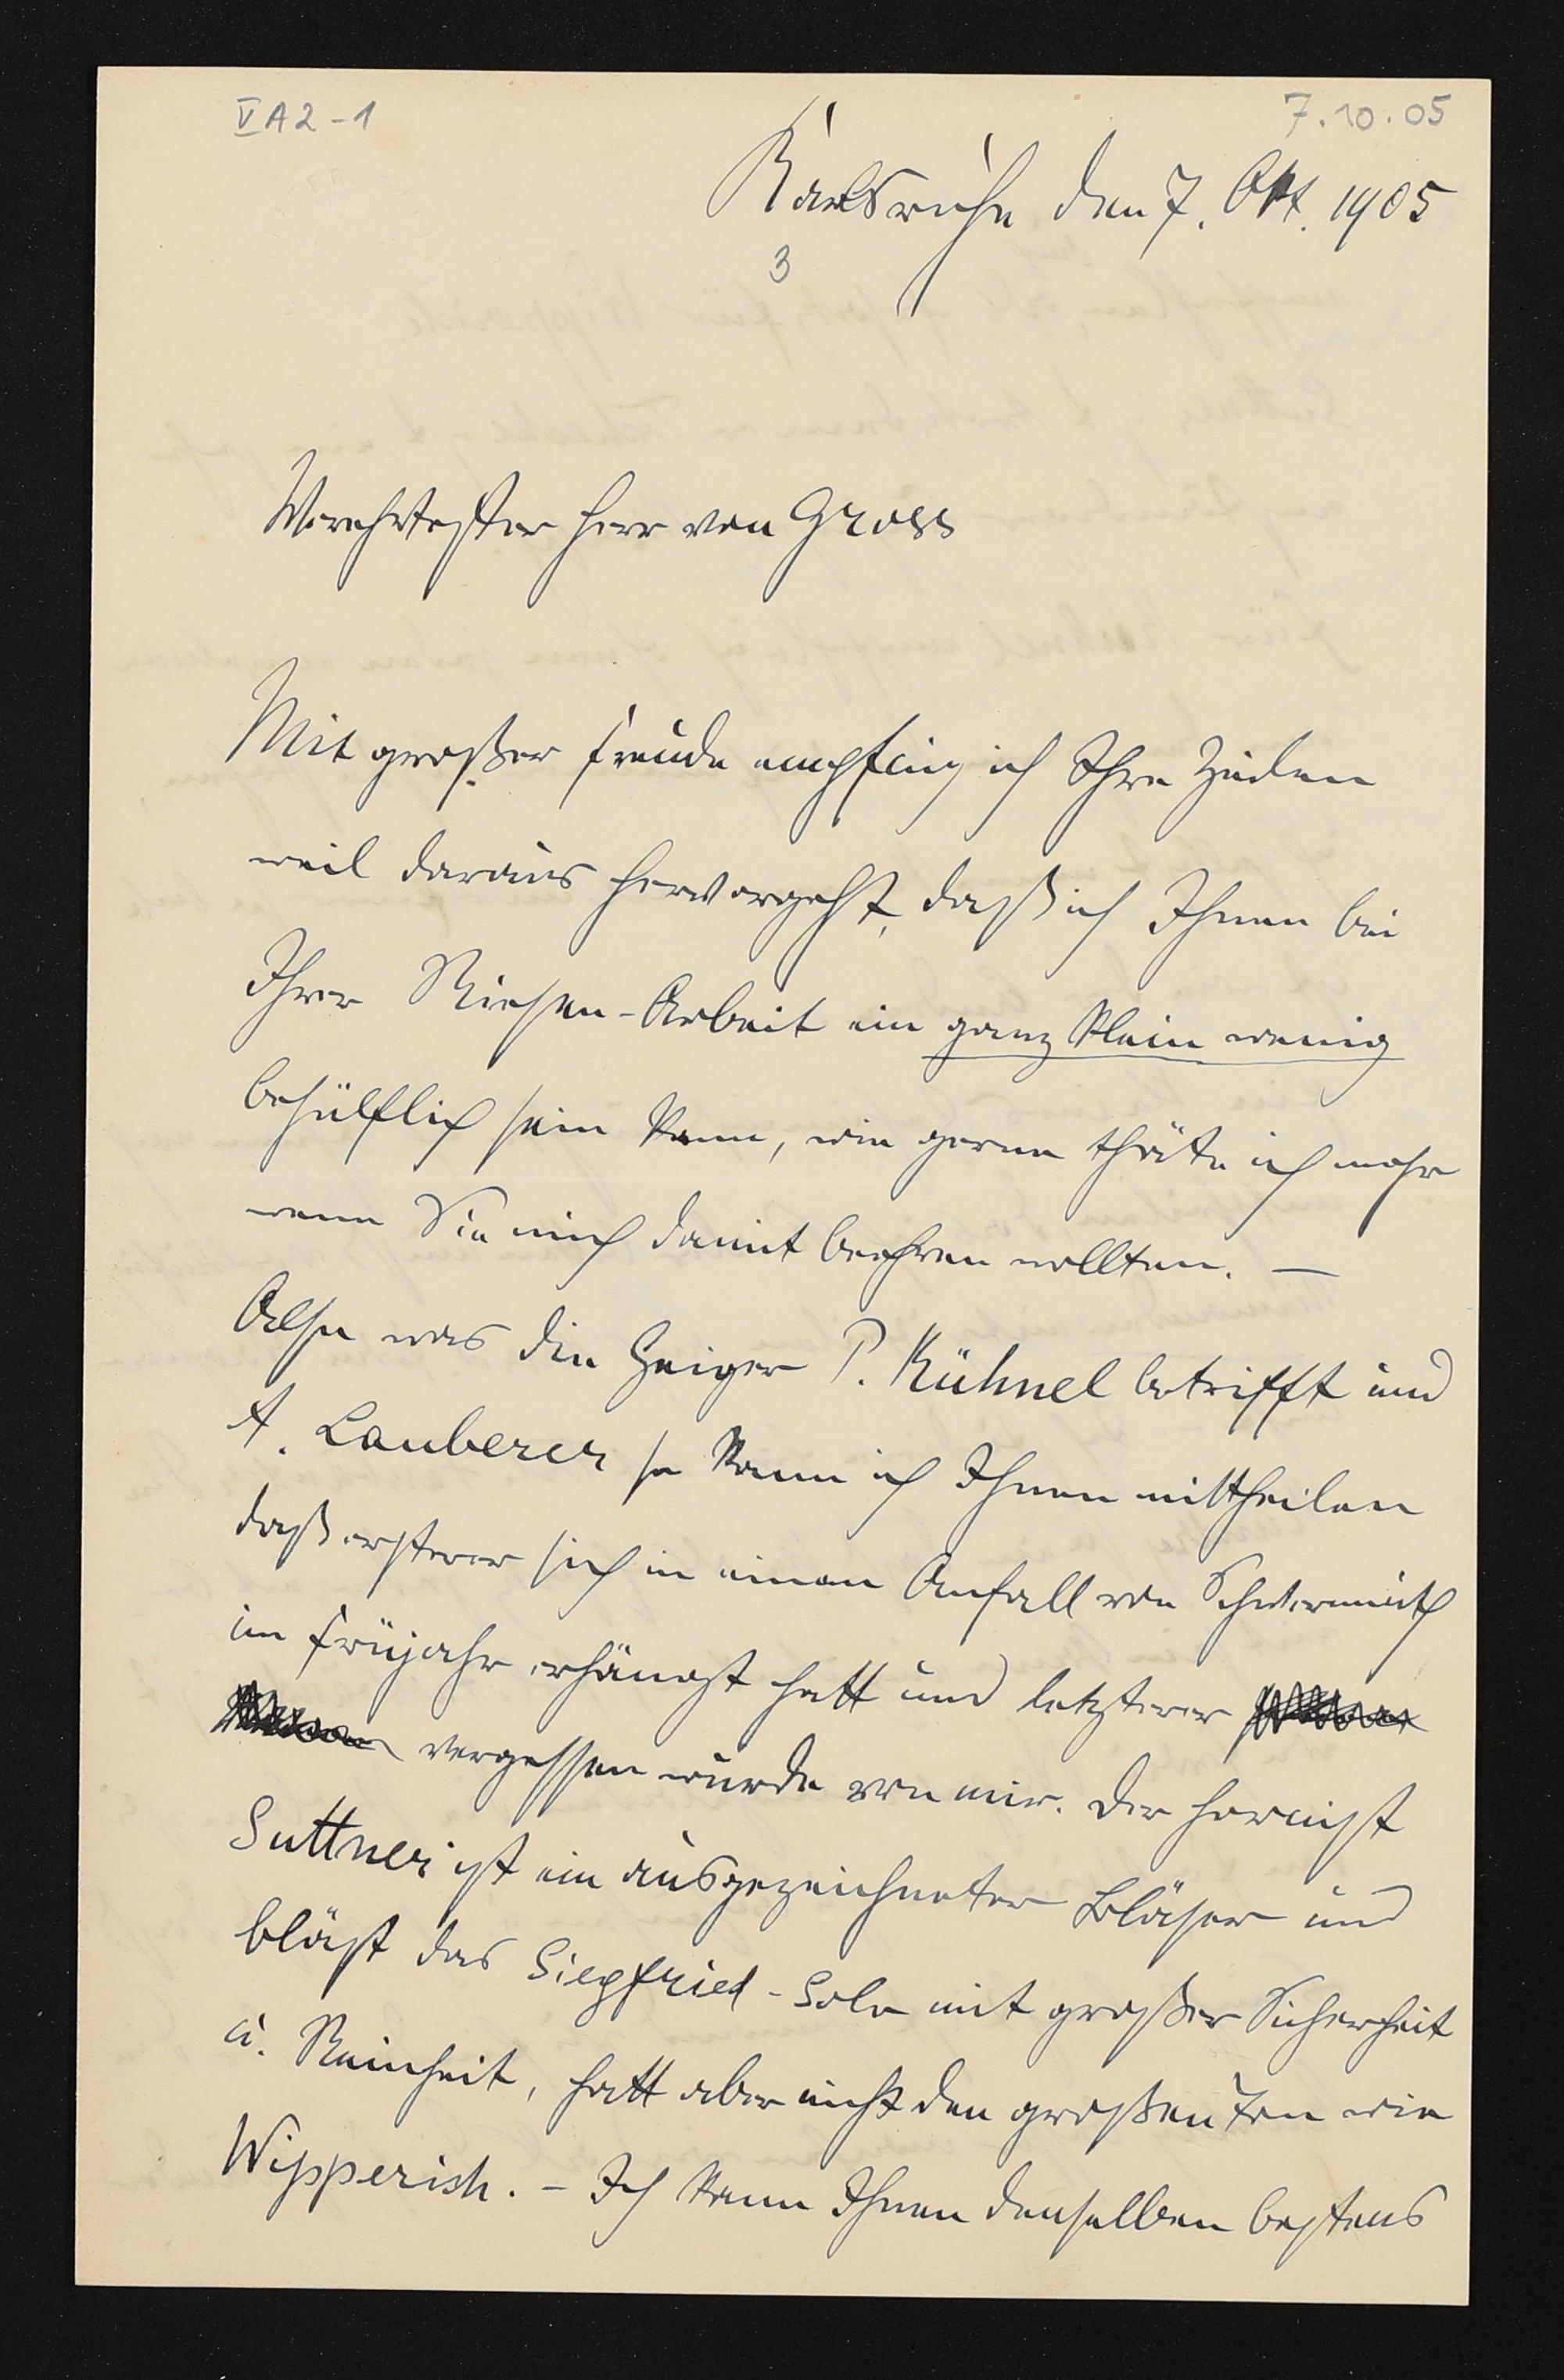 V A 2 - 1
7.10.05
Karlsruhe den 7. Okt. 1905
3
Verehrtester Herr von Gross
Mit großer Freude empfing ich Ihre Zeilen
weil daraus hervorgeht, daß ich Ihnen bei
Ihrer Riesen-Arbeit ein ganz klein wenig
behülflich sein kann, wie gerne thäte ich mehr
wenn Sie mich damit beehren wollten. —
Also was die Geiger P. Kühnel betrifft und
A. Lauberer so kann ich Ihnen mittheilen
daß ersterer sich in einen Anfall von Schwermuth
im Früjahr erhängt hatt und letzterer
vergessen wurde von mir. Der Hornist
Suttner ist ein ausgezeichneter Bläser und
bläst das Siegfried-Solo mit großer Sicherheit
u. Reinheit, hatt aber nicht den großen Ton wie
Wipperich. – Ich kann Ihnen denselben bestens